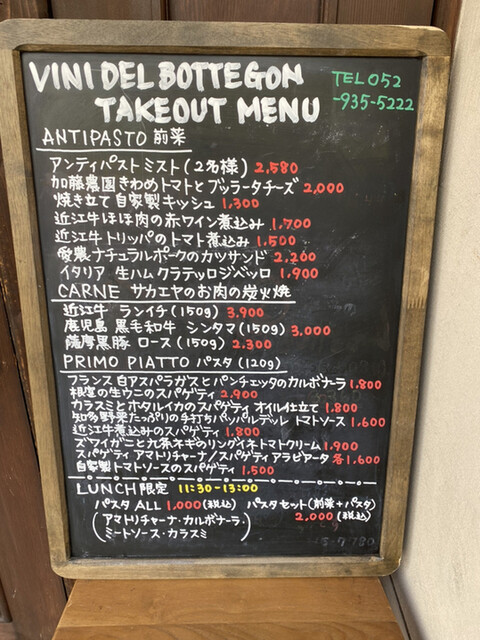 VINI DEL BOTTEGON
TAKEOUT MENU
TEL 052
-935-5222
ANTIPASTO 前菜
アンティパストミスト(2名様) 2,580
加藤農園きわめトマトとブッラータチーズ 2,000
焼き立て自家製キッシュ 1,300
近江牛ほほ肉の赤ワイン煮込み 1,700
近江牛トリッパのトマト煮込み 1,500
愛農ナチュラルポークのカツサンド 2,200
イタリア 生ハム クラテッロジベッロ 1,900
CARNE サカエヤのお肉の炭火焼
近江牛 ランイチ(150g) 3,900
鹿児島 黒毛和牛 シンタマ(150g) 3,000
薩摩黒豚 ロース(150g) 2,300
PRIMO PIATTO パスタ(120g)
フランス白アスパラガスとパンチェッタのカルボナーラ 1,800
根室の生ウニのスパゲティ 2,900
カラスミとホタルイカのスパゲティ オイル仕立て 1,800
知多野菜たっぷりの手打ちパッパルデッレ トマトソース 1,600
近江牛煮込みのスパゲティ 1,800
ズワイガニと九条ネギのリングイネトマトクリーム 1,900
スパゲティ アマトリチャーナ/スパゲティ アラビアータ 各1,600
自家製トマトソースのスパゲティ 1,500
LUNCH限定 11:30-13:00
パスタ ALL 1,000(税込) パスタセット(前菜+パスタ)
2,000(税込)
(アマトリチャーナ・カルボナーラ・
ミートソース・カラスミ)